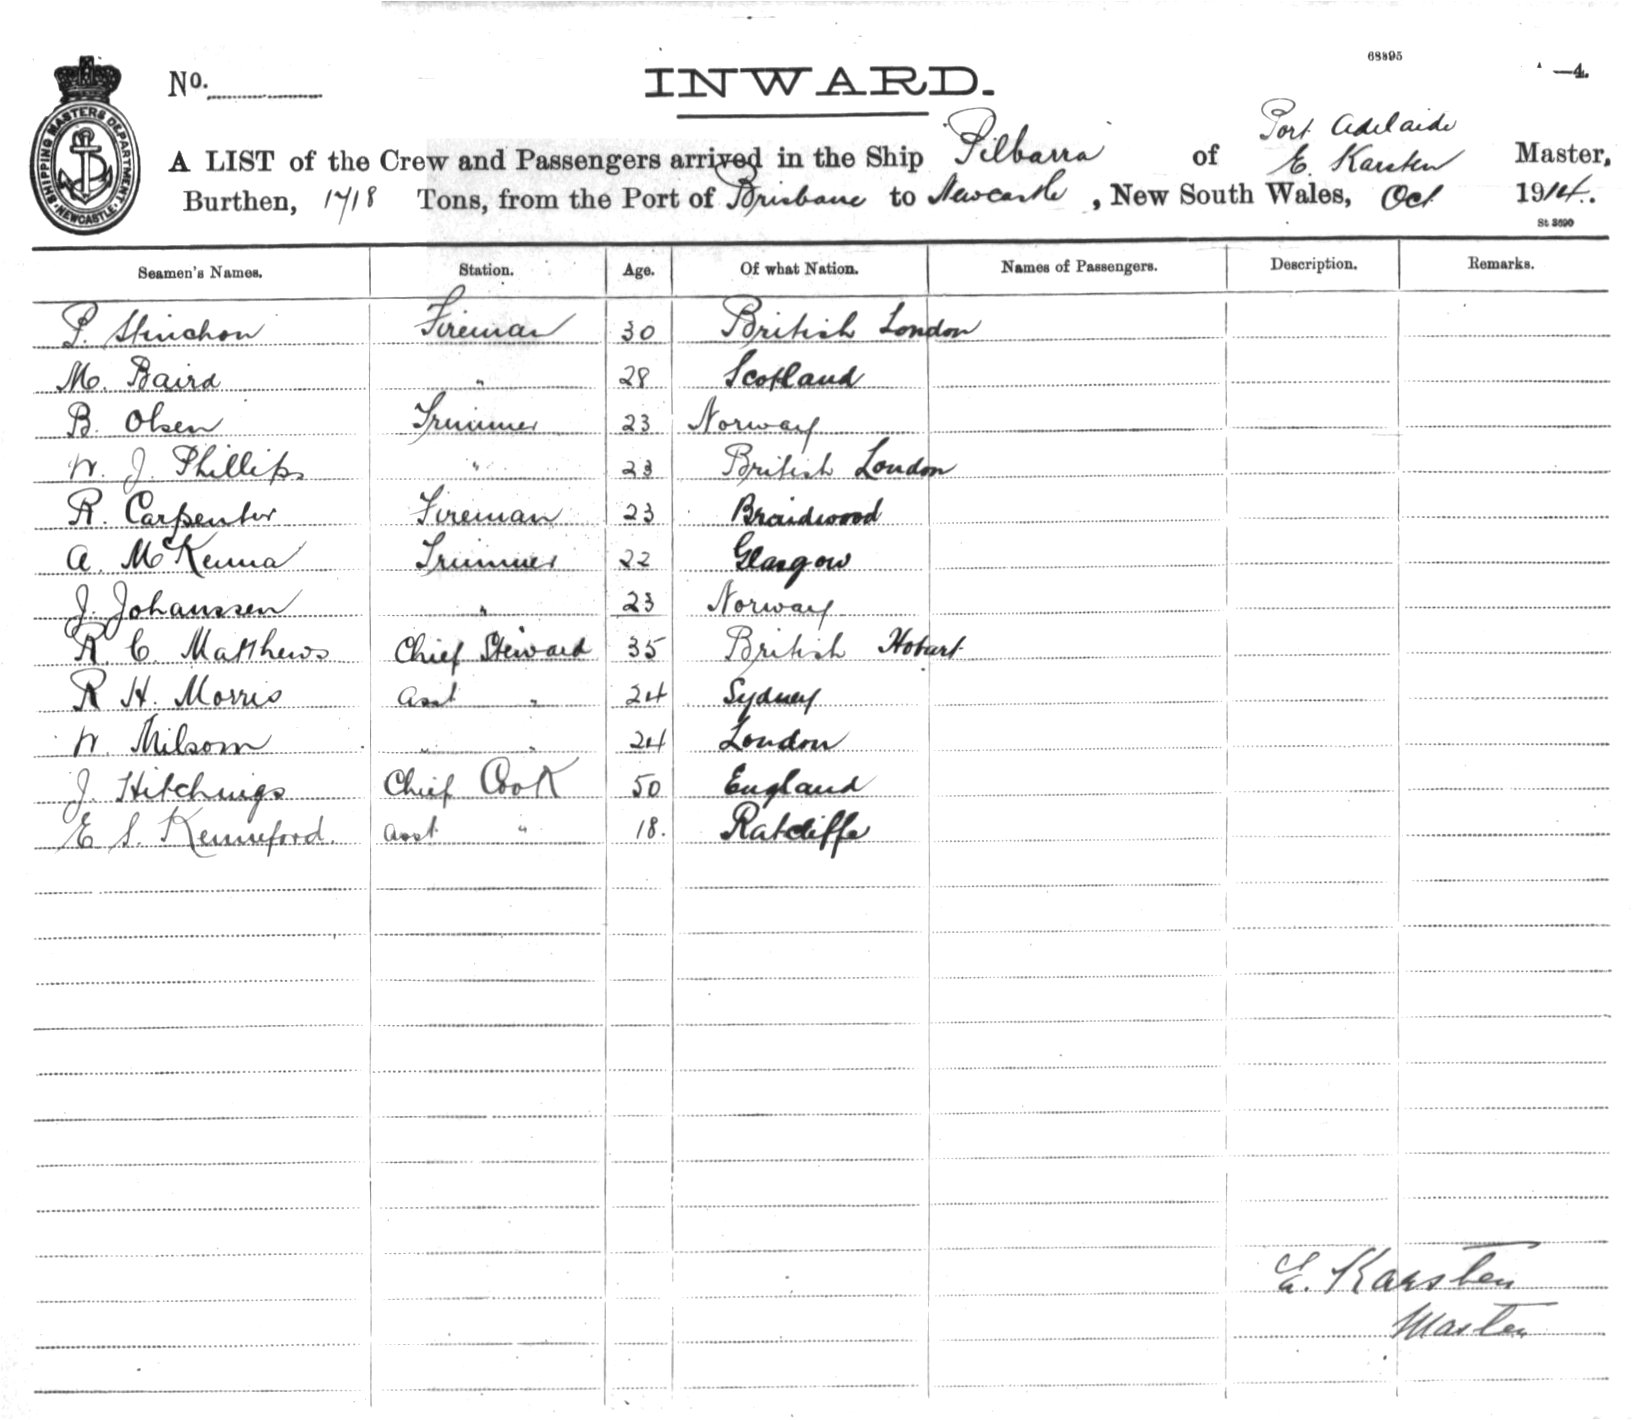 68895
—4.
No.
INWARD.
SHIPPING MASTERS DEPARTMENT NEWCASTLE
Port Adelaide
A LIST of the Crew and Passengers arrived in the Ship Pilbarra of E. Karsten Master,
Burthen, 1718 Tons, from the Port of Brisbane to Newcastle, New South Wales, Oct 1914.
St 3590
Seamen's Names. Station. Age. Of what Nation. Names of Passengers. Description. Remarks.
P. Stinchon Fireman 30 British London
M. Baird " 28 Scotland
B. Olsen Trimmer 23 Norway
W. J. Phillips " 23 British London
R. Carpenter Fireman 23 Braidwood
A. McKenna Trimmer 22 Glasgow
J. Johanssen " 23 Norway
R. C. Matthews Chief Steward 35 British Hobart
R H. Morris Asst " 24 Sydney
W. Milsom " " 24 London
J. Hitchings Chief Cook 50 England
E S. Kenneford. Asst " 18. Ratcliffe
E. Karsten
Master